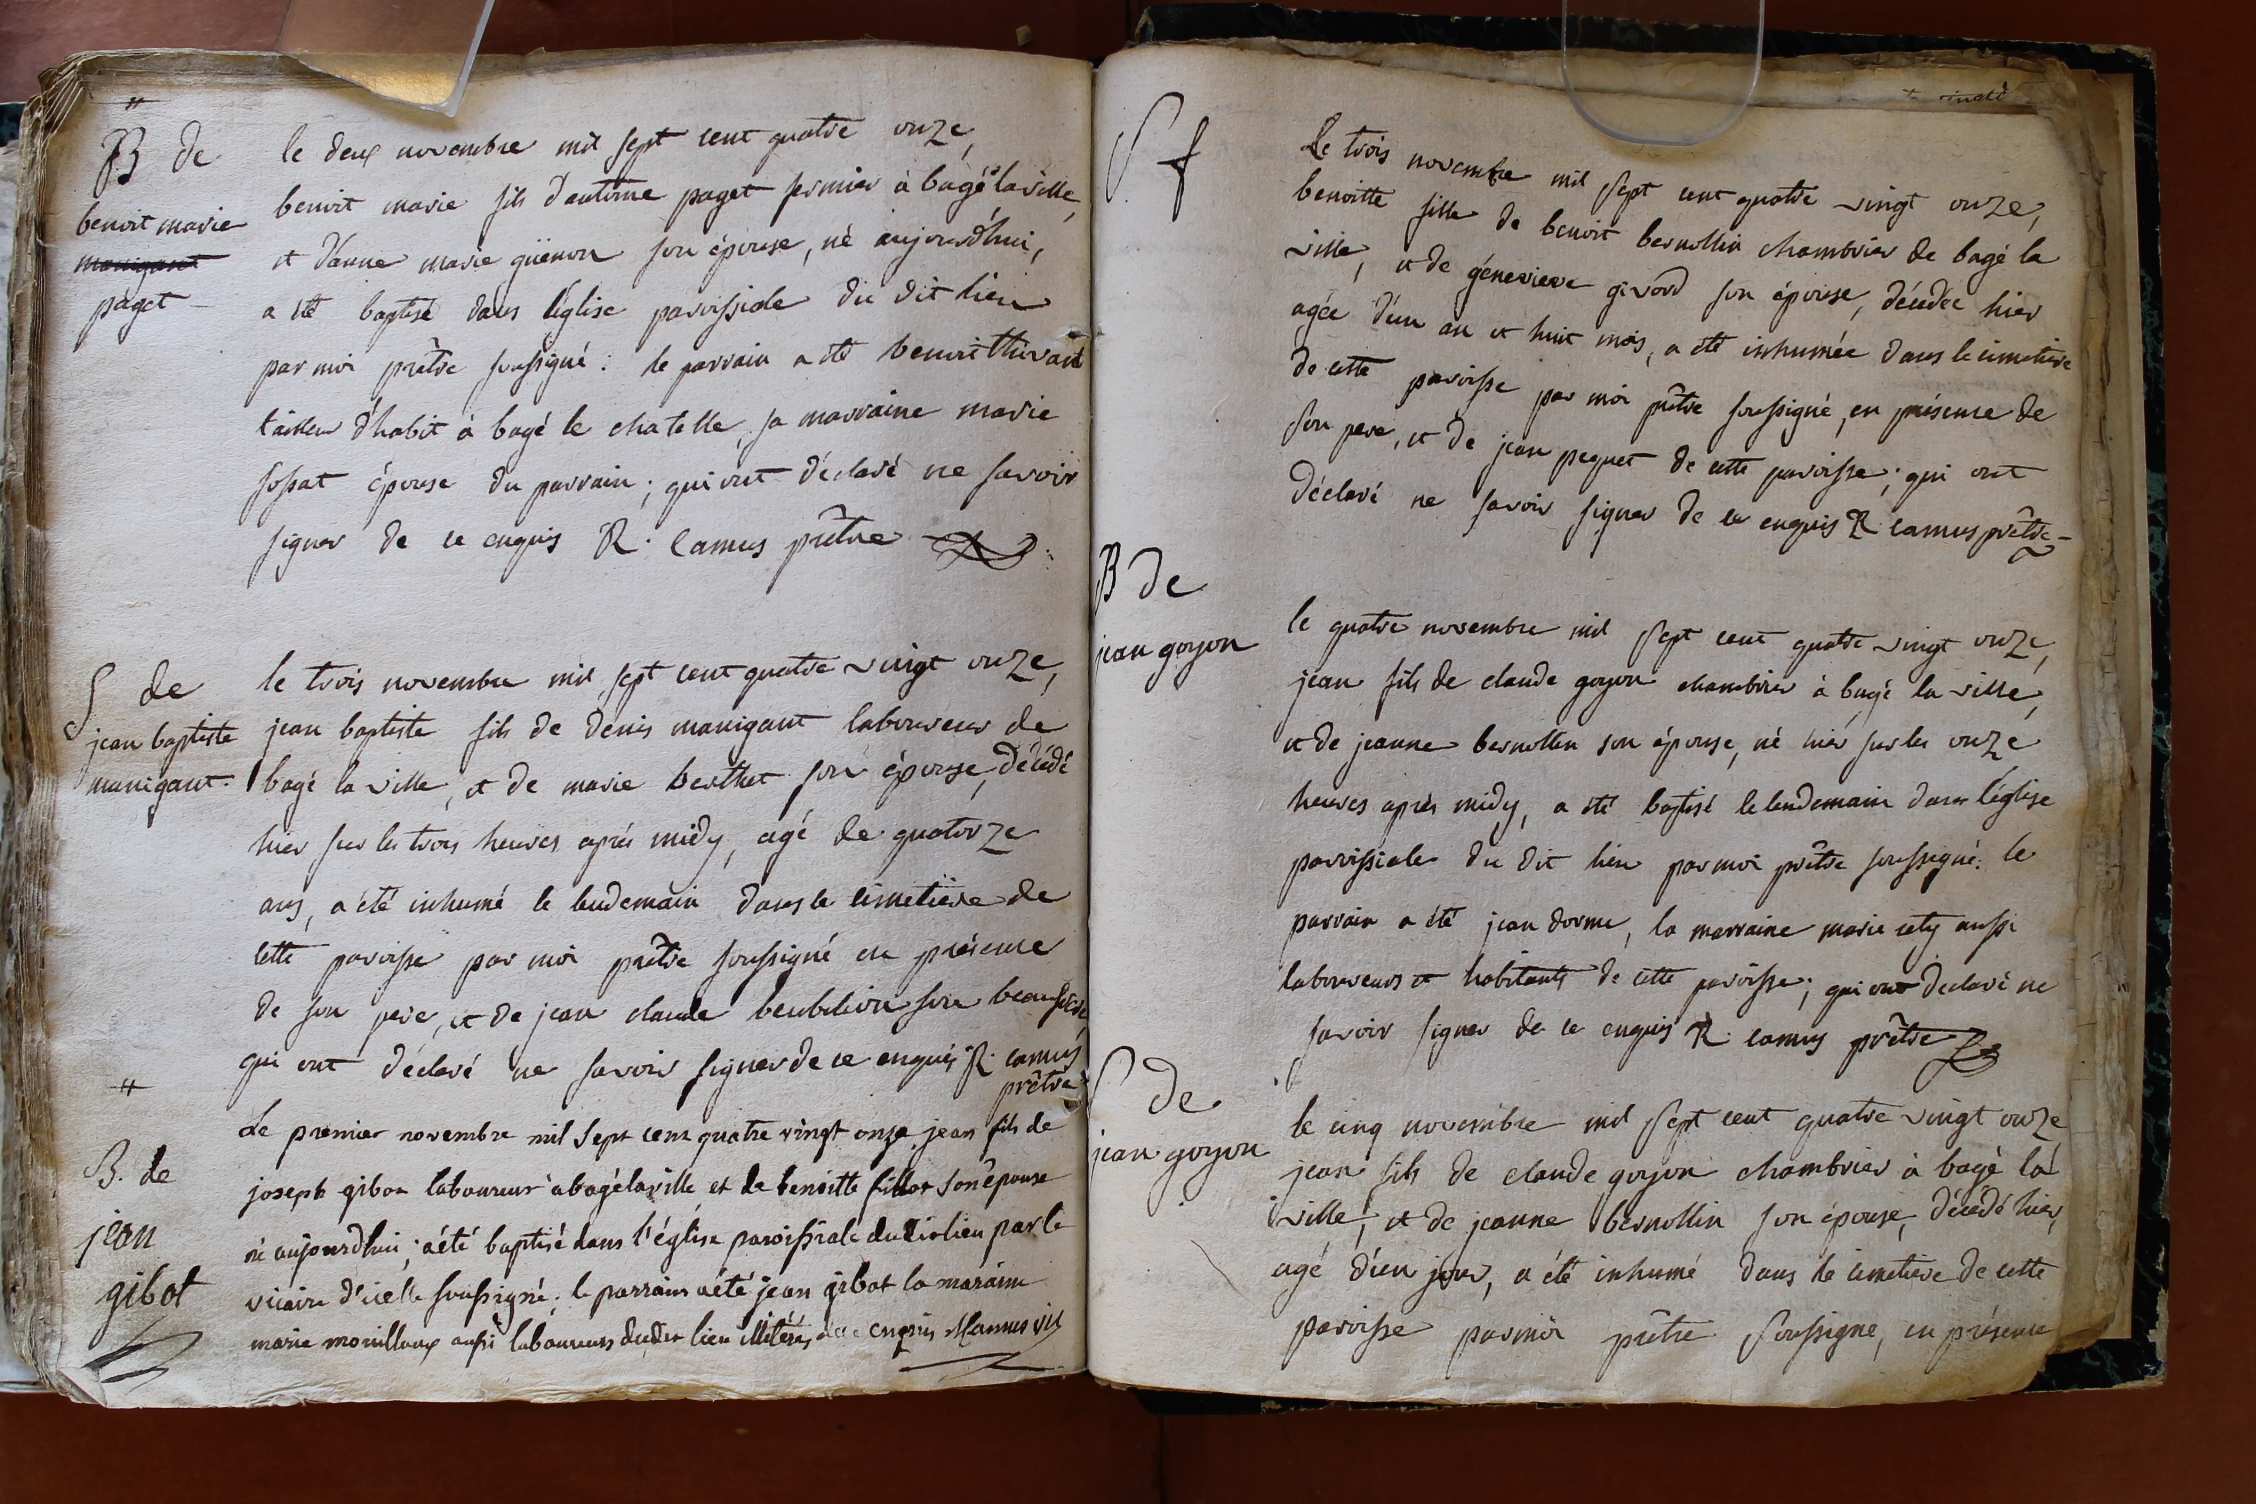 B de
benoit marie
manigant
paget
le deux novembre mil sept cent quatre onze,
benoit marie fils d'antoine paget fermier à bagé la ville,
et d'anne marie guënon son épouse, né aujourd'hui,
a été baptisé dans l'église paroissiale du dit lieu
par moi prêtre soussigné : le parrain a été benoit thivant
tailleur d'habit à bagé le chatelle, sa marraine marie
fossat épouse du parrain ; qui ont déclaré ne savoir
signer de ce enquis R. camus prêtre
S de
jean baptiste
manigant.
le trois novembre mil sept cent quatre vingt onze,
jean baptiste fils de denis manigant laboureur de
bagé la ville, et de marie berthet son épouse, décédé
hier sur les trois heures après midy, agé de quatorze
ans, a été inhumé le lendemain dans le cimetière de
cette paroisse par moi prêtre soussigné en présence
de son pere, et de jean claude beubilion son beau frere
qui ont déclaré ne savoir signer de ce enquis R. camus
prêtre
B. de
jean
gibot
Le premier novembre mil sept cent quatre vingt onze jean fils de
joseph gibot laboureur à bagé la ville et de benoitte fillot son épouse
né aujourdhui, a été baptisé dans l'église paroissiale du dit lieu par le
vicaire d'icelle soussigné ; le parrain a été jean gibot la maraine
marie morilloux aussi laboureurs dudit lieu illitérés de ce enquis camus vic
S f
Le trois novembre mil sept cent quatre vingt onze,
benoitte fille de benoit bernollin chambrier de bagé la
ville, et de génevieve givord son épouse, décédée hier
agée d'un an et huit mois, a été inhumée dans le cimetiere
de cette paroisse par moi prêtre soussigné, en présence de
son pere, et de jean pequet de cette paroisse ; qui ont
déclaré ne savoir signer de ce enquis R camus prêtre
B de
jean goyon
le quatre novembre mil sept cent quatre vingt onze,
jean fils de claude goyon chambrier à bagé la ville,
et de jeanne bernollin son épouse, né hier sur les onze
heures après midy, a été baptisé le lendemain dans l'église
paroissiale du dit lieu par moi prêtre soussigné. le
parrain a été jean dorme, la marraine marie cety aussi
laboureurs et habitants de cette paroisse ; qui ont declaré ne
savoir signer de ce enquis R camus prêtre
S de
jean goyon
le cinq novembre mil sept cent quatre vingt onze
jean fils de claude goyon chambrier à bagé la
ville, et de jeanne bernollin son épouse, décédé hier,
agé d'un jour, a été inhumé dans le cimetiere de cette
paroisse par moi prêtre soussigné, en présence